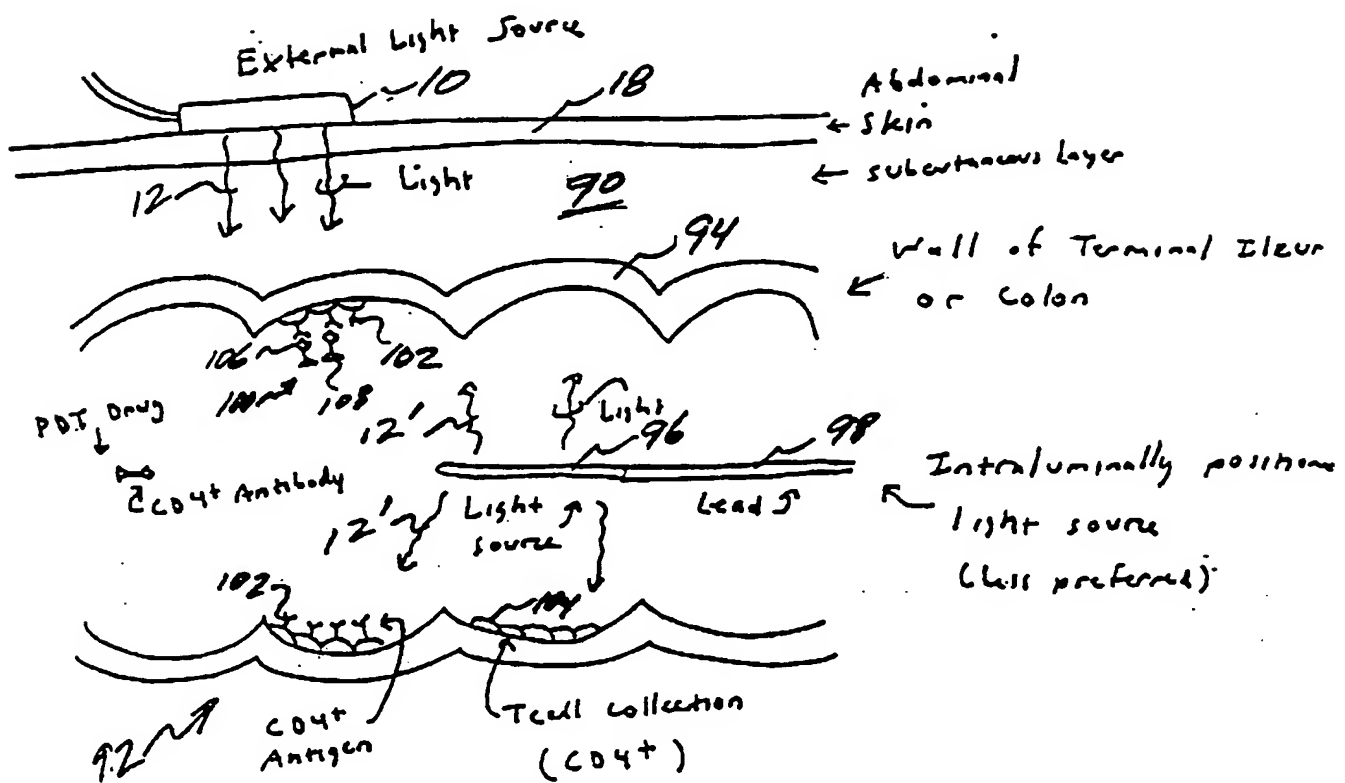 External Light Source
10
18
Abdominal
Skin
subcutaneous Layer
12
Light
90
94
Wall of Terminal Ileum
or Colon
106
102
100
108
PDT Drug
CD4+ Antibody
12'
Light
96
98
Lead
Intraluminally positione
light source
(less preferred)
12'
Light
source
102
104
92
CD4+
Antigen
Tcell collection
(CD4+)